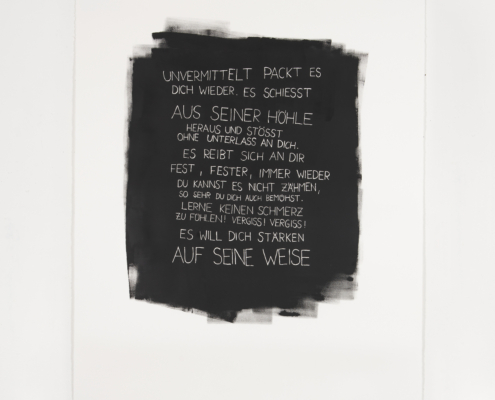 UNVERMITTELT PACKT ES
DICH WIEDER. ES SCHIESST
AUS SEINER HÖHLE
HERAUS UND STÖSST
OHNE UNTERLASS AN DICH.
ES REIBT SICH AN DIR
FEST, FESTER, IMMER WIEDER
DU KANNST ES NICHT ZÄHMEN,
SO SEHR DU DICH AUCH BEMÜHST.
LERNE KEINEN SCHMERZ
ZU FÜHLEN! VERGISS! VERGISS!
ES WILL DICH STÄRKEN
AUF SEINE WEISE